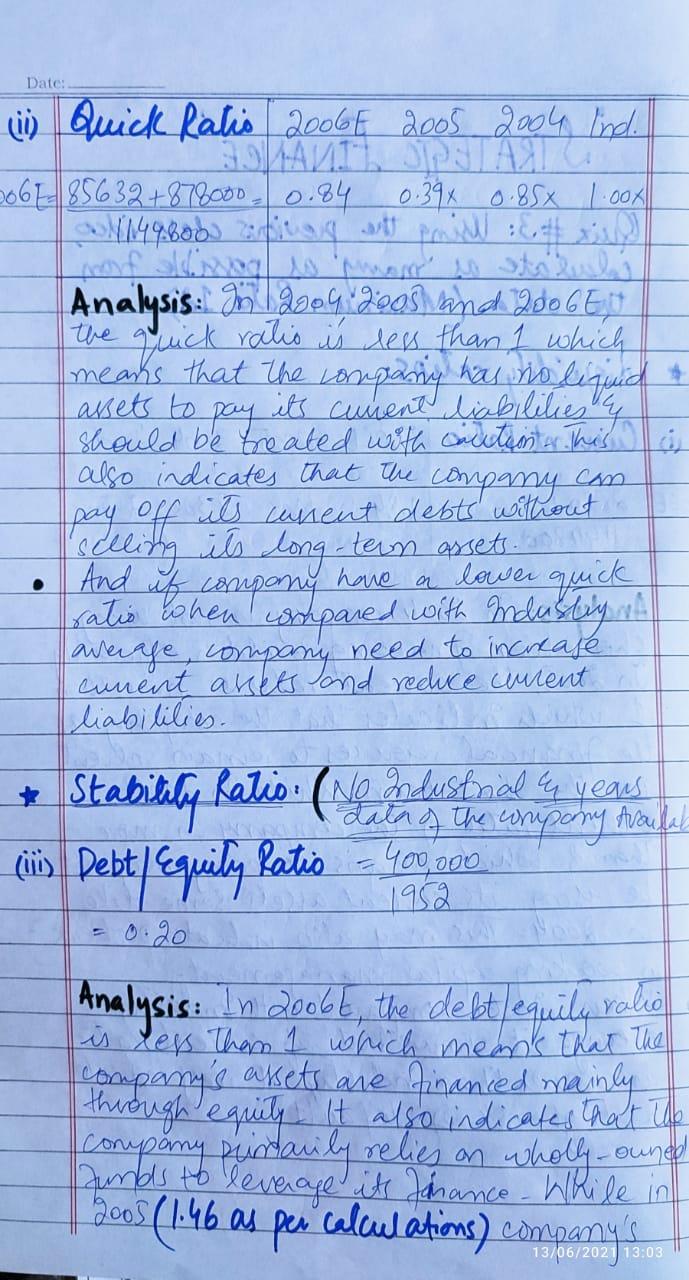 Date:
(ii) Quick Ratio 2006E 2005 2004 Ind.
006E= 85632+878000 = 0.84 0.39x 0.85x 1.00x
1149800
Analysis: In 2004, 2005 and 2006E,
the quick ratio is less than 1 which
means that the company has no liquid
assets to pay its current liabilities &
should be treated with caution. This
also indicates that the company can
pay off its current debts without
selling its long-term assets.
• And if company have a lower quick
ratio when compared with Industry
average, company need to increase
current assets and reduce current
liabilities.
* Stability Ratio: (No Industrial & years
data of the company Availab
(iii) Debt/Equity Ratio = 400,000
1952
= 0.20
Analysis: In 2006E, the debt/equity ratio
is less than 1 which means that the
company's assets are financed mainly
through equity. It also indicates that the
company primarily relies on wholly-owned
funds to leverage its finance. While in
2005 (1.46 as per calculations) company's
13/06/2021 13:03